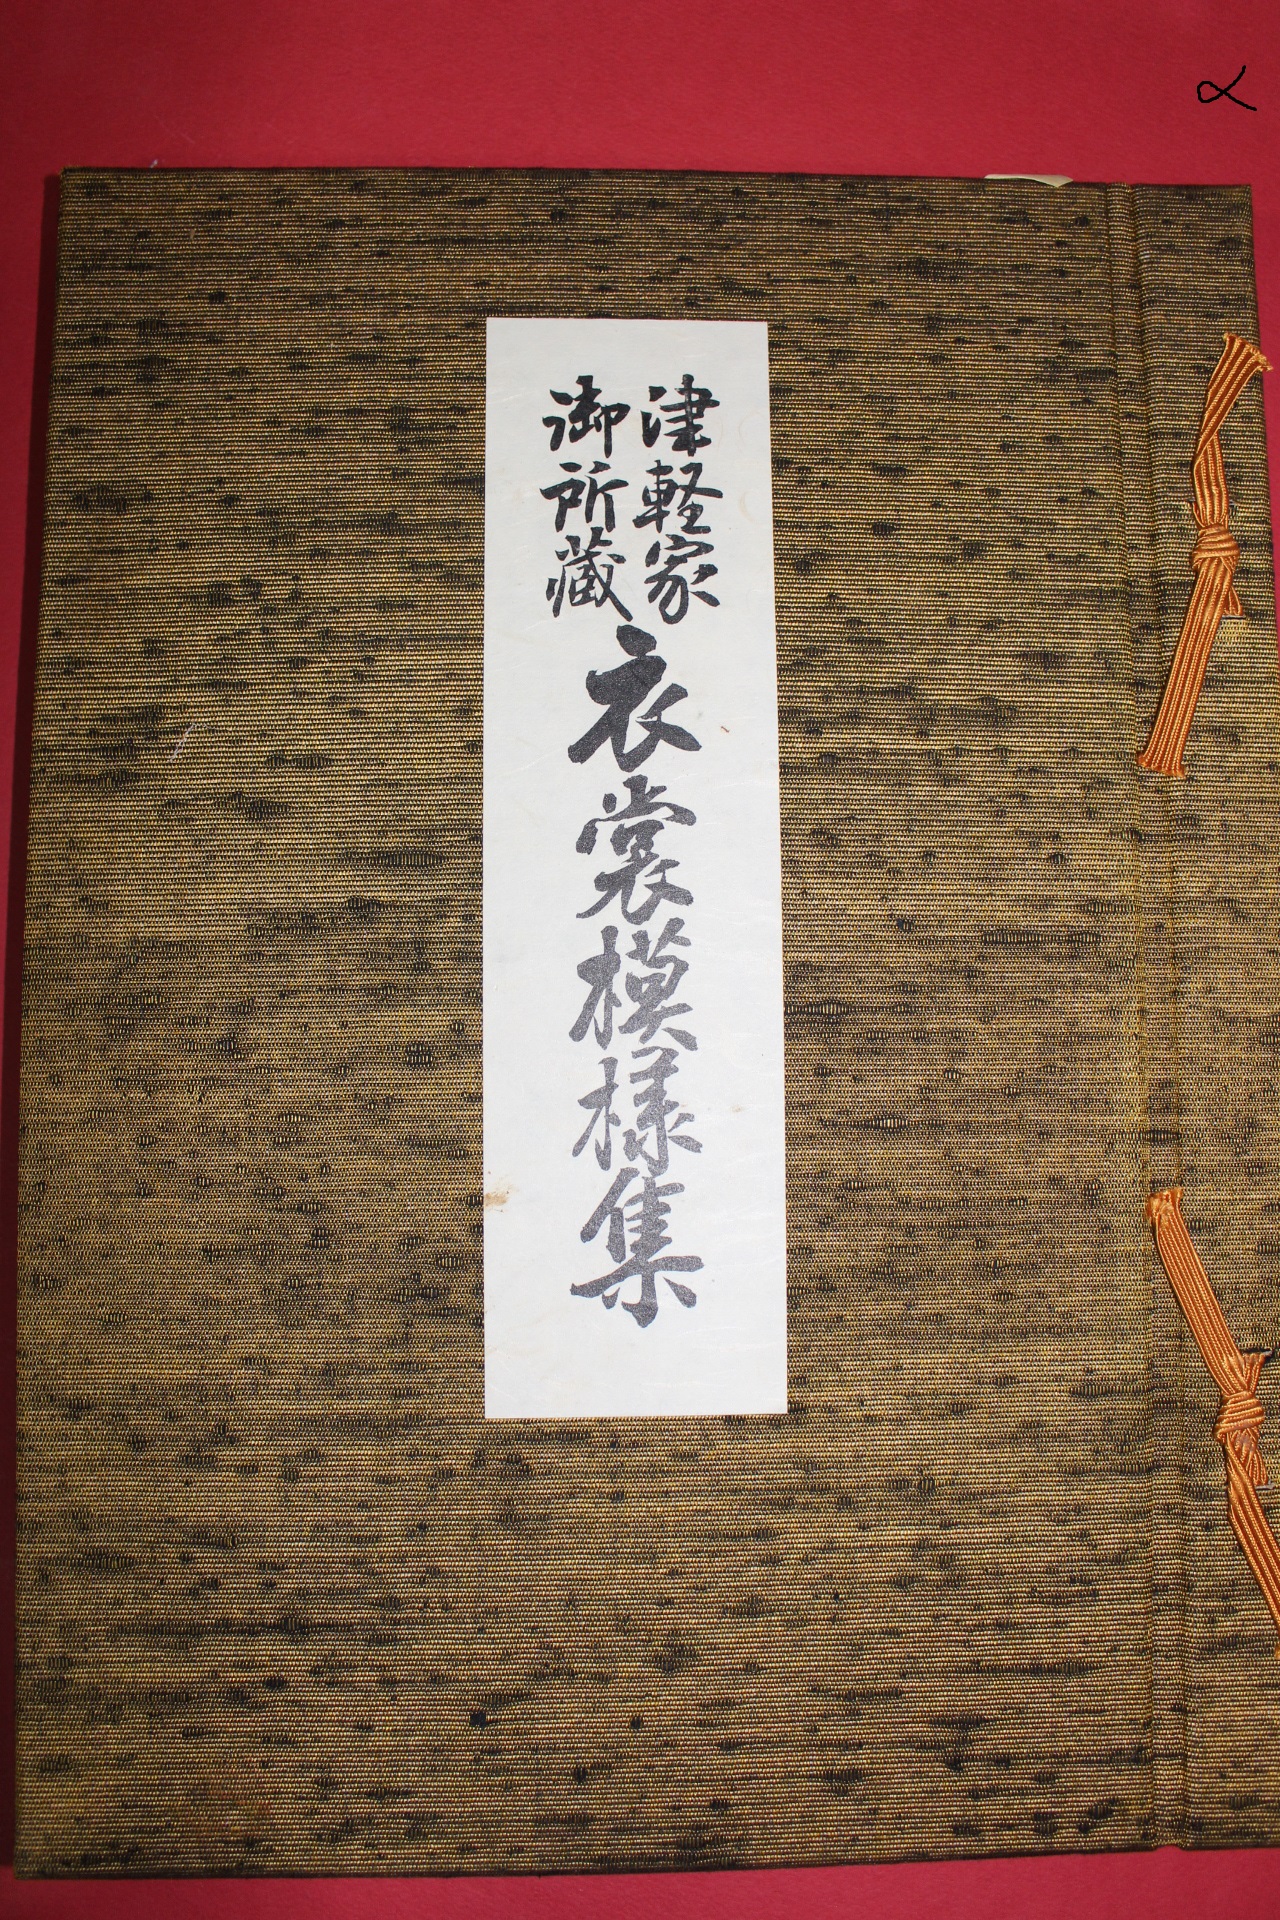 津軽家
御所蔵
衣裳模様集